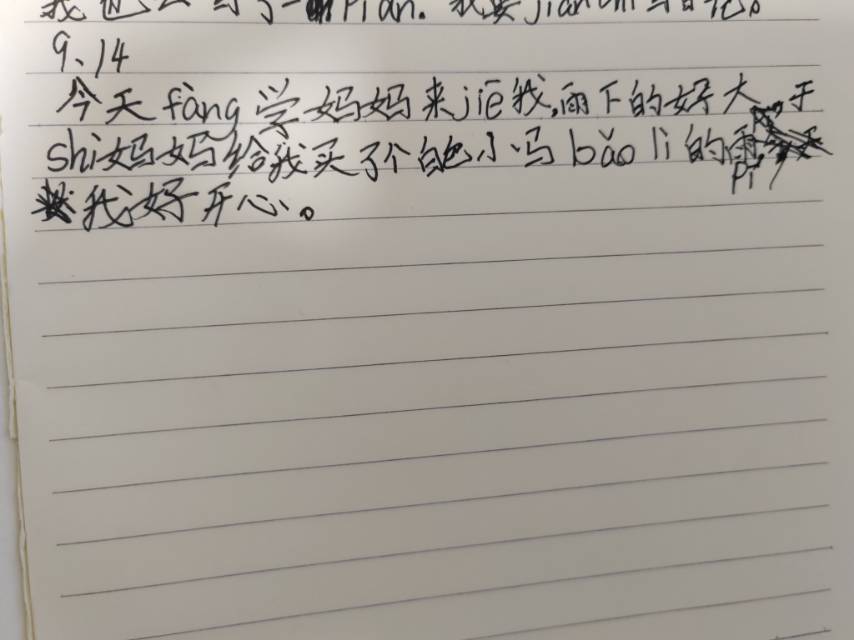 我也会写了一pian.我要jianchi写日记。
9、14
今天fàng学妈妈来jiē我,雨下的好大,于
shì妈妈给我买了个白色小马bǎo lì的雨
pī,
我好开心。